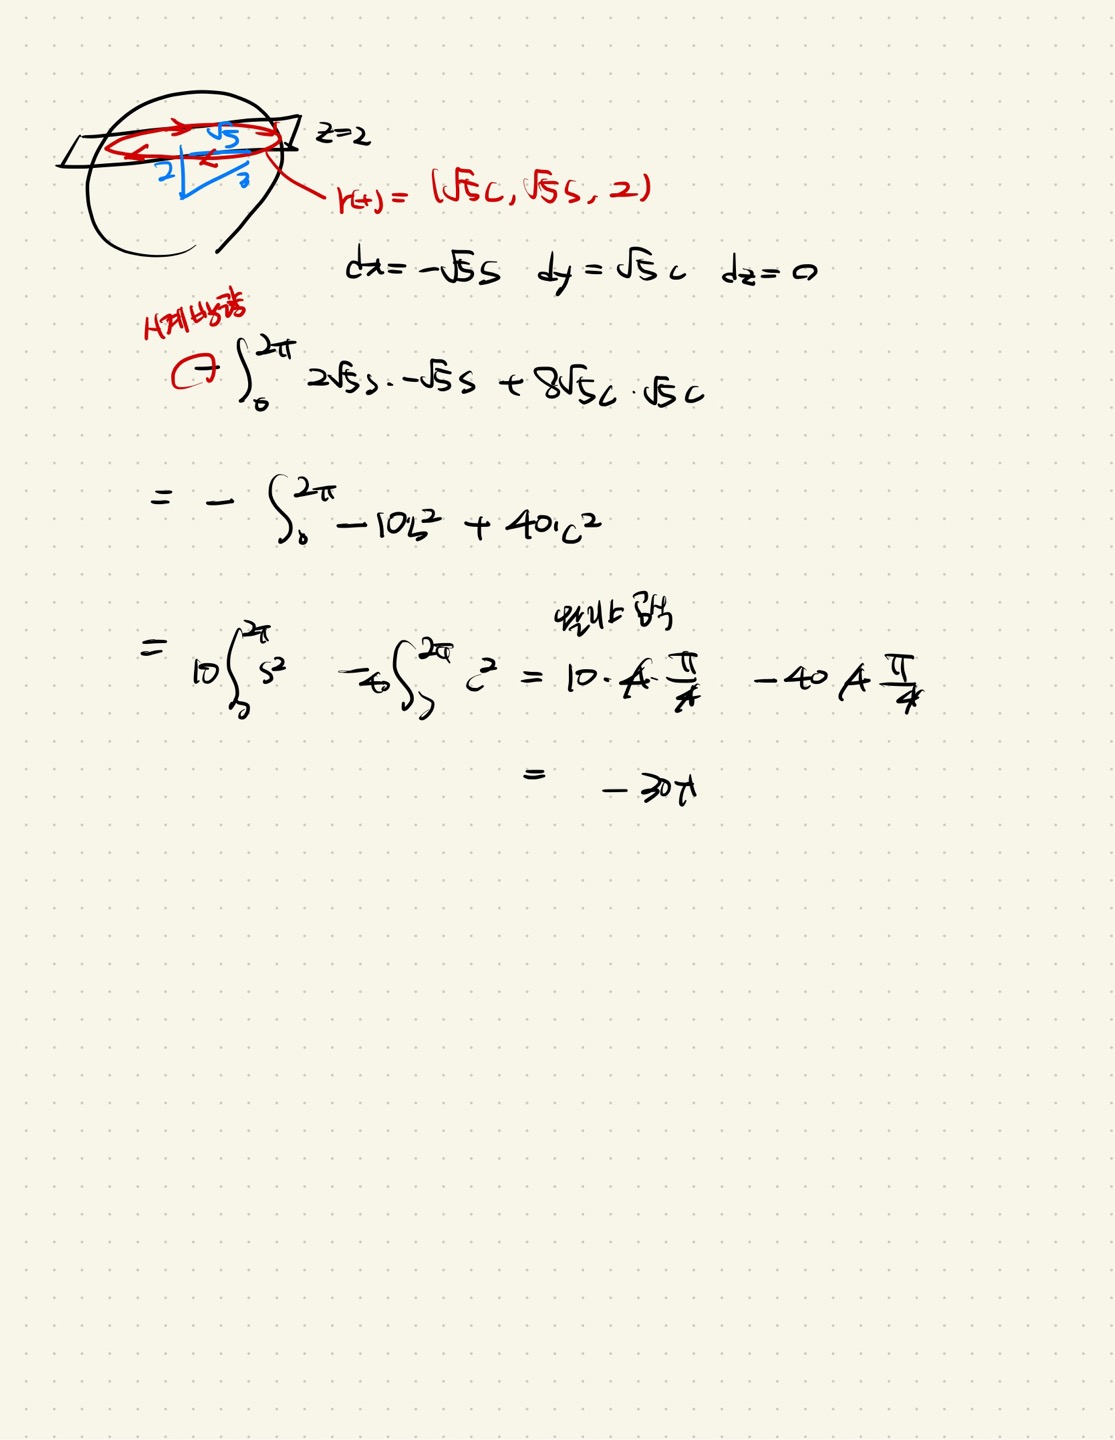 z=2
√5
2 3
r(t) = (√5c, √5s, 2)
dx = -√5s dy = √5c dz = 0
시계방향
- ∫₀^2π 2√5s · -√5s + 8√5c · √5c
= - ∫₀^2π -10s² + 40c²
왈리스 공식
= 10∫₀^2π s² -40∫₀^2π c² = 10 · 4 · π/4 - 40 4 π/4
= -30π